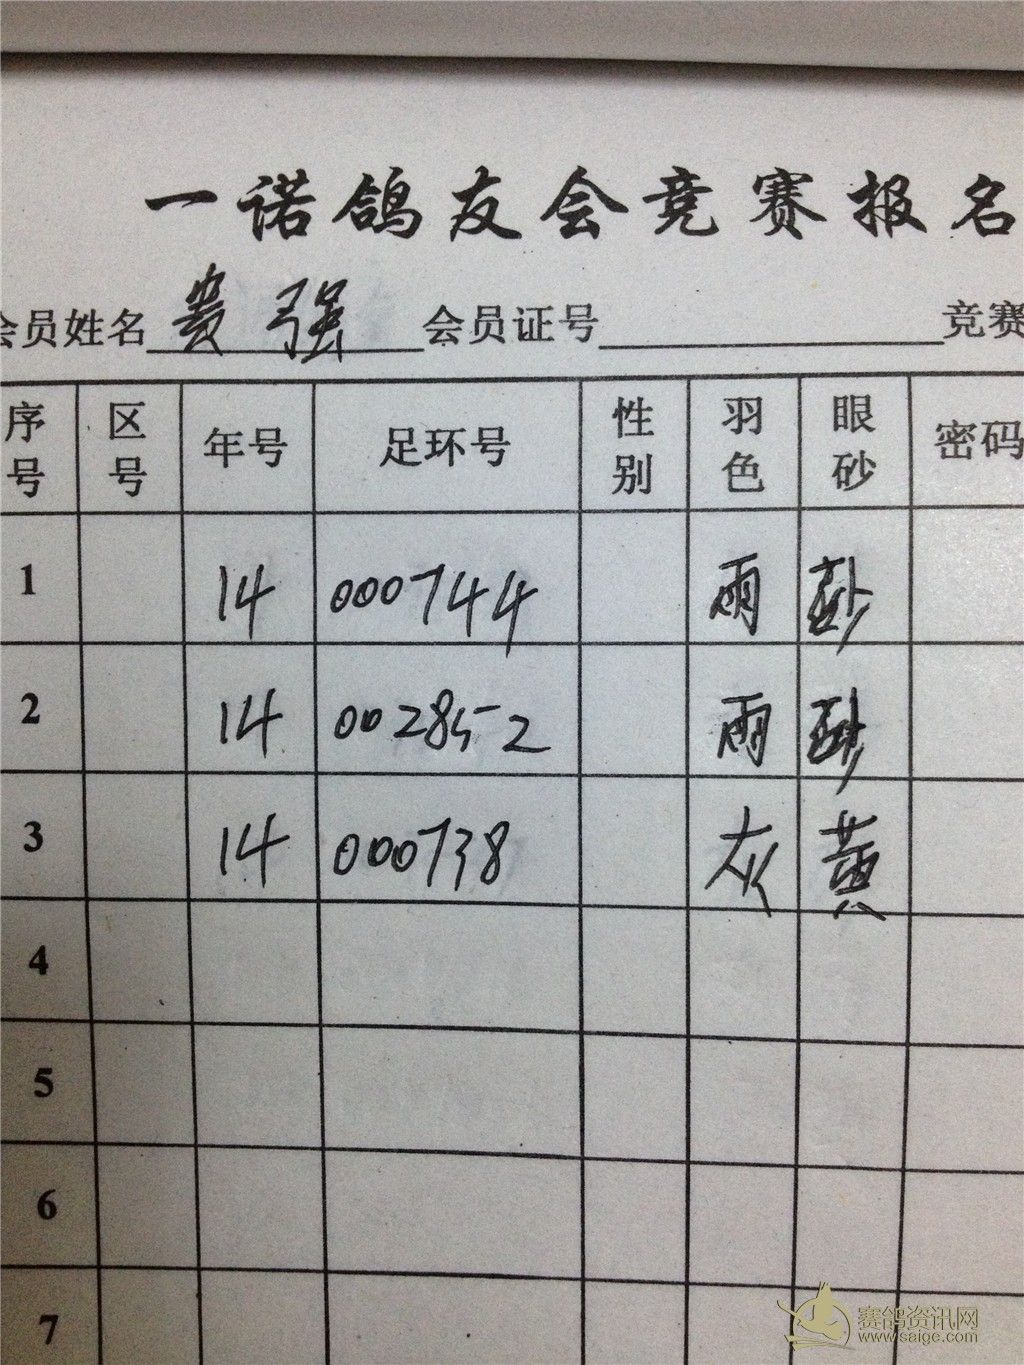 一诺鸽友会竞赛报名
会员姓名 贵强 会员证号 竞赛
序号 区号 年号 足环号 性别 羽色 眼砂 密码
1 14 000744 雨
2 14 002852 雨
3 14 000738 灰 黄
4
5
6
7
赛鸽资讯网
www.saige.com